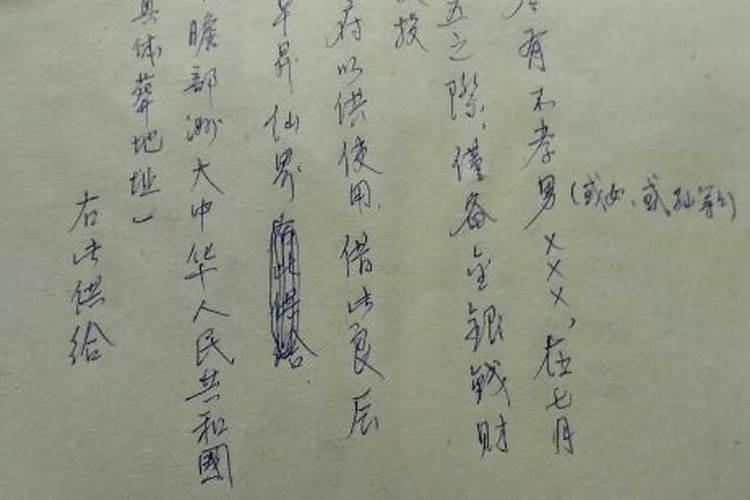 有不孝男(或女、或孙等)×××,在七月
五之际,仅备金银钱财
投
府以供使用,借此良辰
早昇仙界
瞻部洲大中华人民共和國
具体葬地址)
右此供给